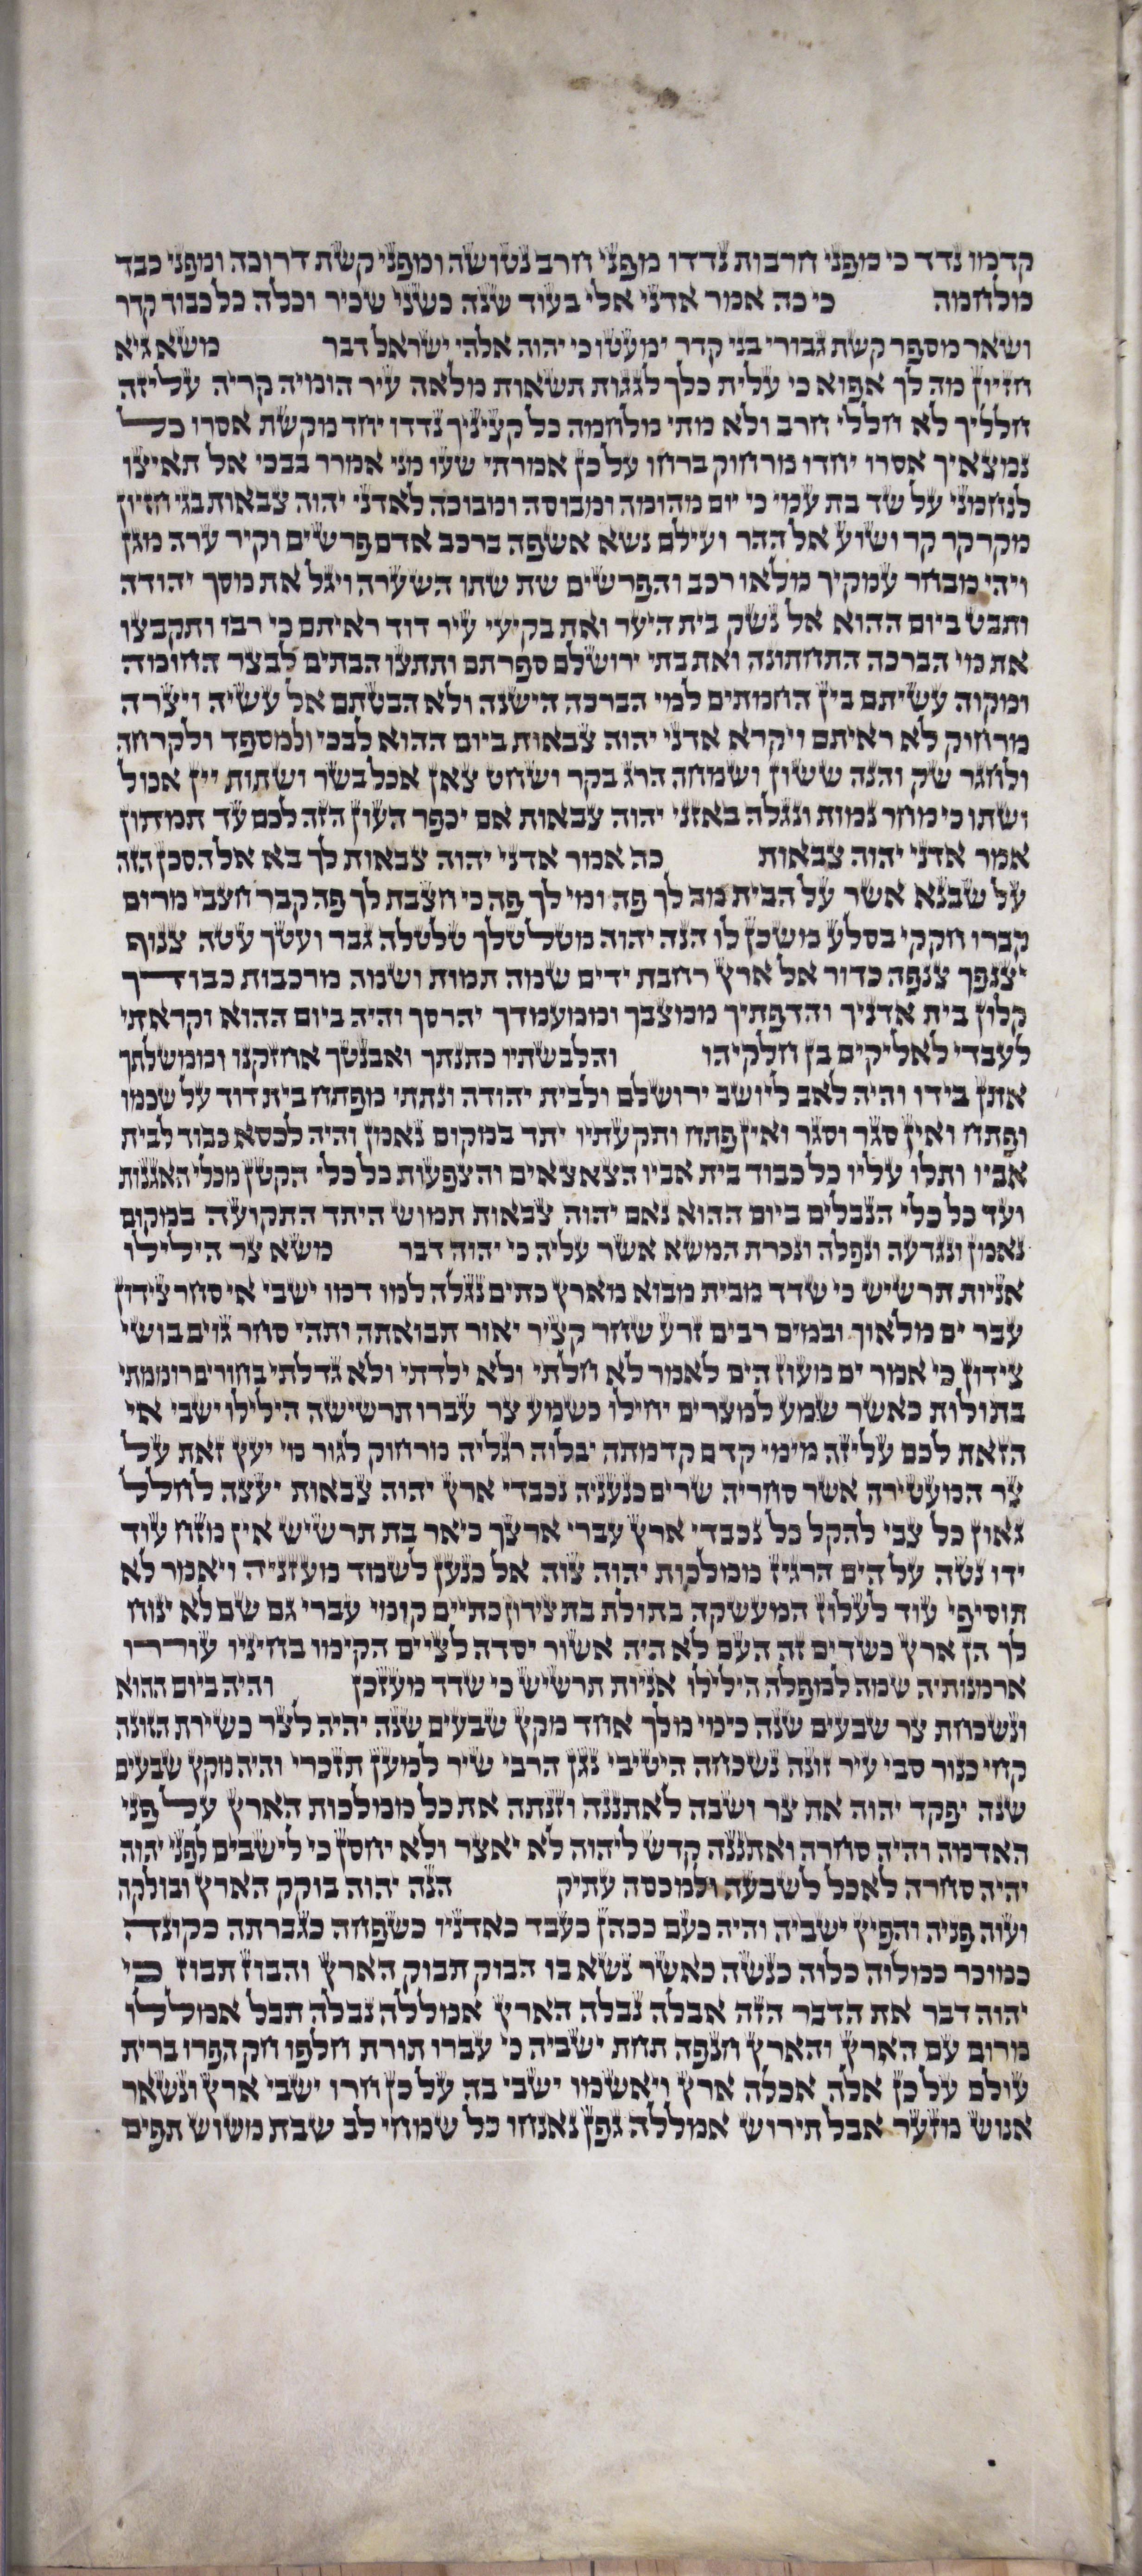 קדמו נדד כי מפני חרבות נדדו מפני חרב נטושה ומפני קשת דרוכה ומפני כבד
מלחמה כי כה אמר אדני אלי בעוד שנה כשני שכיר וכלה כל כבוד קדר
ושאר מספר קשת גבורי בני קדר ימעטו כי יהוה אלהי ישראל דבר משא גיא
חזיון מה לך אפוא כי עלית כלך לגגות תשאות מלאה עיר הומיה קריה עליזה
חלליך לא חללי חרב ולא מתי מלחמה כל קציניך נדדו יחד מקשת אסרו כל
נמצאיך אסרו יחדו מרחוק ברחו על כן אמרתי שעו מני אמרר בבכי אל תאיצו
לנחמני על שד בת עמי כי יום מהומה ומבוסה ומבוכה לאדני יהוה צבאות בגי חזיון
מקרקר קר ושוע אל ההר ועילם נשא אשפה ברכב אדם פרשים וקיר ערה מגן
ויהי מבחר עמקיך מלאו רכב והפרשים שת שתו השערה ויגל את מסך יהודה
ותבט ביום ההוא אל נשק בית היער ואת בקיעי עיר דוד ראיתם כי רבו ותקבצו
את מי הברכה התחתונה ואת בתי ירושלם ספרתם ותתצו הבתים לבצר החומה
ומקוה עשיתם בין החמתים למי הברכה הישנה ולא הבטתם אל עשיה ויצרה
מרחוק לא ראיתם ויקרא אדני יהוה צבאות ביום ההוא לבכי ולמספד ולקרחה
ולחגר שק והנה ששון ושמחה הרג בקר ושחט צאן אכל בשר ושתות יין אכול
ושתו כי מחר נמות ונגלה באזני יהוה צבאות אם יכפר העון הזה לכם עד תמתון
אמר אדני יהוה צבאות כה אמר אדני יהוה צבאות לך בא אל הסכן הזה
על שבנא אשר על הבית מה לך פה ומי לך פה כי חצבת לך פה קבר חצבי מרום
קברו חקקי בסלע משכן לו הנה יהוה מטלטלך טלטלה גבר ועטך עטה צנוף
יצנפך צנפה כדור אל ארץ רחבת ידים שמה תמות ושמה מרכבות כבודך
קלון בית אדניך והדפתיך ממצבך וממעמדך יהרסך והיה ביום ההוא וקראתי
לעבדי לאליקים בן חלקיהו והלבשתיו כתנתך ואבנטך אחזקנו וממשלתך
אתן בידו והיה לאב ליושב ירושלם ולבית יהודה ונתתי מפתח בית דוד על שכמו
ופתח ואין סגר וסגר ואין פתח ותקעתיו יתד במקום נאמן והיה לכסא כבוד לבית
אביו ותלו עליו כל כבוד בית אביו הצאצאים והצפעות כל כלי הקטן מכלי האגנות
ועד כל כלי הנבלים ביום ההוא נאם יהוה צבאות תמוש היתד התקועה במקום
נאמן ונגדעה ונפלה ונכרת המשא אשר עליה כי יהוה דבר משא צר הילילו
אניות תרשיש כי שדד מבית מבוא מארץ כתים נגלה למו דמו ישבי אי סחר צידון
עבר ים מלאוך ובמים רבים זרע שחר קציר יאור תבואתה ותהי סחר גוים בושי
צידון כי אמר ים מעוז הים לאמר לא חלתי ולא ילדתי ולא גדלתי בחורים רוממתי
בתולות כאשר שמע למצרים יחילו כשמע צר עברו תרשישה הילילו ישבי אי
הזאת לכם עליזה מימי קדם קדמתה יבלוה רגליה מרחוק לגור מי יעץ זאת על
צר המעטירה אשר סחריה שרים כנעניה נכבדי ארץ יהוה צבאות יעצה לחלל
גאון כל צבי להקל כל נכבדי ארץ עברי ארצך כיאר בת תרשיש אין מזח עוד
ידו נטה על הים הרגיז ממלכות יהוה צוה אל כנען לשמד מעזניה ויאמר לא
תוסיפי עוד לעלוז המעשקה בתולת בת צידון כתיים קומי עברי גם שם לא ינוח
לך הן ארץ כשדים זה העם לא היה אשור יסדה לציים הקימו בחיניו עוררו
ארמנותיה שמה למפלה הילילו אניות תרשיש כי שדד מעזכן והיה ביום ההוא
ונשכחת צר שבעים שנה כימי מלך אחד מקץ שבעים שנה יהיה לצר כשירת הזונה
קחי כנור סבי עיר זונה נשכחה היטיבי נגן הרבי שיר למען תזכרי והיה מקץ שבעים
שנה יפקד יהוה את צר ושבה לאתננה וזנתה את כל ממלכות הארץ על פני
האדמה והיה סחרה ואתננה קדש ליהוה לא יאצר ולא יחסן כי לישבים לפני יהוה
יהיה סחרה לאכל לשבעה ולמכסה עתיק הנה יהוה בוקק הארץ ובולקה
ועוה פניה והפיץ ישביה והיה כעם ככהן כעבד כאדניו כשפחה כגברתה כקונה
כמוכר כמלוה כלוה כנשה כאשר נשא בו הבוק תבוק הארץ והבוז תבוז כי
יהוה דבר את הדבר הזה אבלה נבלה הארץ אמללה נבלה תבל אמללו
מרום עם הארץ והארץ חנפה תחת ישביה כי עברו תורת חלפו חק הפרו ברית
עולם על כן אלה אכלה ארץ ויאשמו ישבי בה על כן חרו ישבי ארץ ונשאר
אנוש מזער אבל תירוש אמללה גפן נאנחו כל שמחי לב שבת משוש תפים